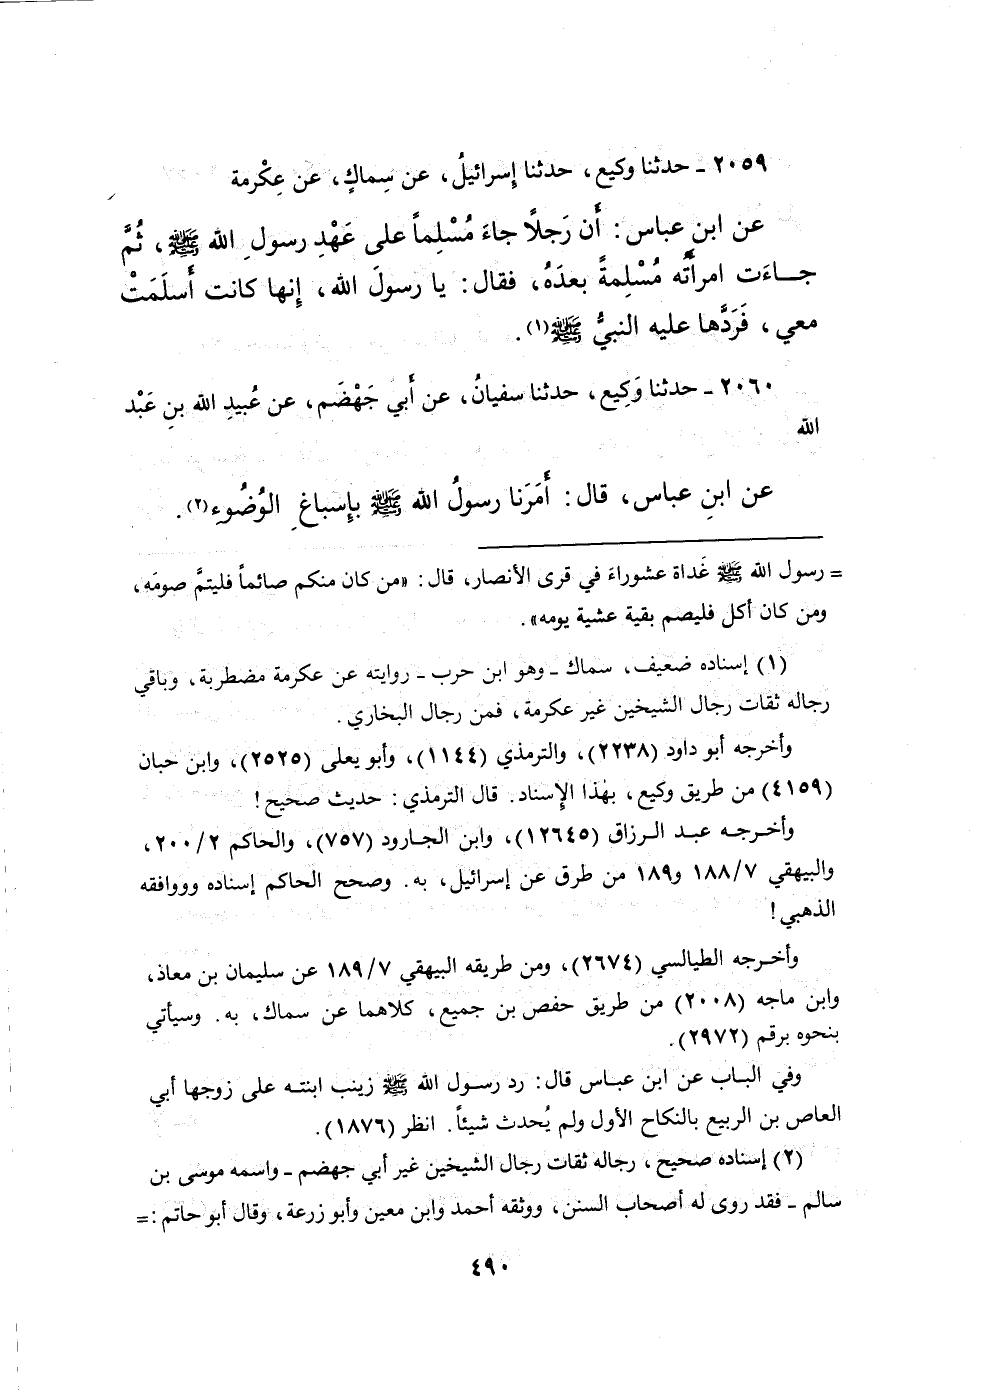 ٢٠٥٩ ـ حدثنا وكيع، حدثنا إسرائيلُ، عن سِماكٍ، عن عِكْرمة
عن ابنِ عباس: أَن رَجلًا جاءَ مُسْلِماً على عَهْدِ رسولِ الله ﷺ، ثُمَّ
جـاءَت امرأَتُه مُسْلِمةً بعدَهُ، فقال: يا رسولَ الله، إِنها كانت أَسلَمَتْ
معي، فَرَدَّها عليه النبيُّ ﷺ(١).
٢٠٦٠ ـ حدثنا وَكِيع، حدثنا سفيانُ، عن أَبي جَهْضَم، عن عُبيدِ الله بنِ عَبْد
الله
عن ابنِ عباس، قال: أَمَرَنا رسولُ الله ﷺ بإِسباغِ الوُضُوءِ(٢).
= رسول الله ﷺ غَداة عشوراءَ في قرى الأنصار، قال: «من كان منكم صائماً فليتمَّ صومَه،
ومن كان أكل فليصم بقية عشية يومه».
(١) إسناده ضعيف، سماك ـ وهو ابن حرب ـ روايته عن عكرمة مضطربة، وباقي
رجاله ثقات رجال الشيخين غير عكرمة، فمن رجال البخاري.
وأخرجه أبو داود (٢٢٣٨)، والترمذي (١١٤٤)، وأبو يعلى (٢٥٢٥)، وابن حبان
(٤١٥٩) من طريق وكيع، بهٰذا الإِسناد. قال الترمذي: حديث صحيح!
وأخـرجـه عبـد الـرزاق (١٢٦٤٥)، وابن الجـارود (٧٥٧)، والحاكم ٢٠٠/٢،
والبيهقي ١٨٨/٧ و١٨٩ من طرق عن إسرائيل، به. وصحح الحاكم إسناده وووافقه
الذهبي!
وأخـرجه الطيالسي (٢٦٧٤)، ومن طريقه البيهقي ١٨٩/٧ عن سليمان بن معاذ،
وابن ماجه (٢٠٠٨) من طريق حفص بن جميع، كلاهما عن سماك، به. وسيأتي
بنحوه برقم (٢٩٧٢).
وفي البـاب عن ابن عبـاس قال: رد رسـول الله ﷺ زينب ابنتـه على زوجها أبي
العاص بن الربيع بالنكاح الأول ولم يُحدث شيئاً. انظر (١٨٧٦).
(٢) إسناده صحيح، رجاله ثقات رجال الشيخين غير أبي جهضم ـ واسمه موسى بن
سالم ـ فقد روى له أصحاب السنن، ووثقه أحمد وابن معين وأبو زرعة، وقال أبو حاتم: =
٤٩٠